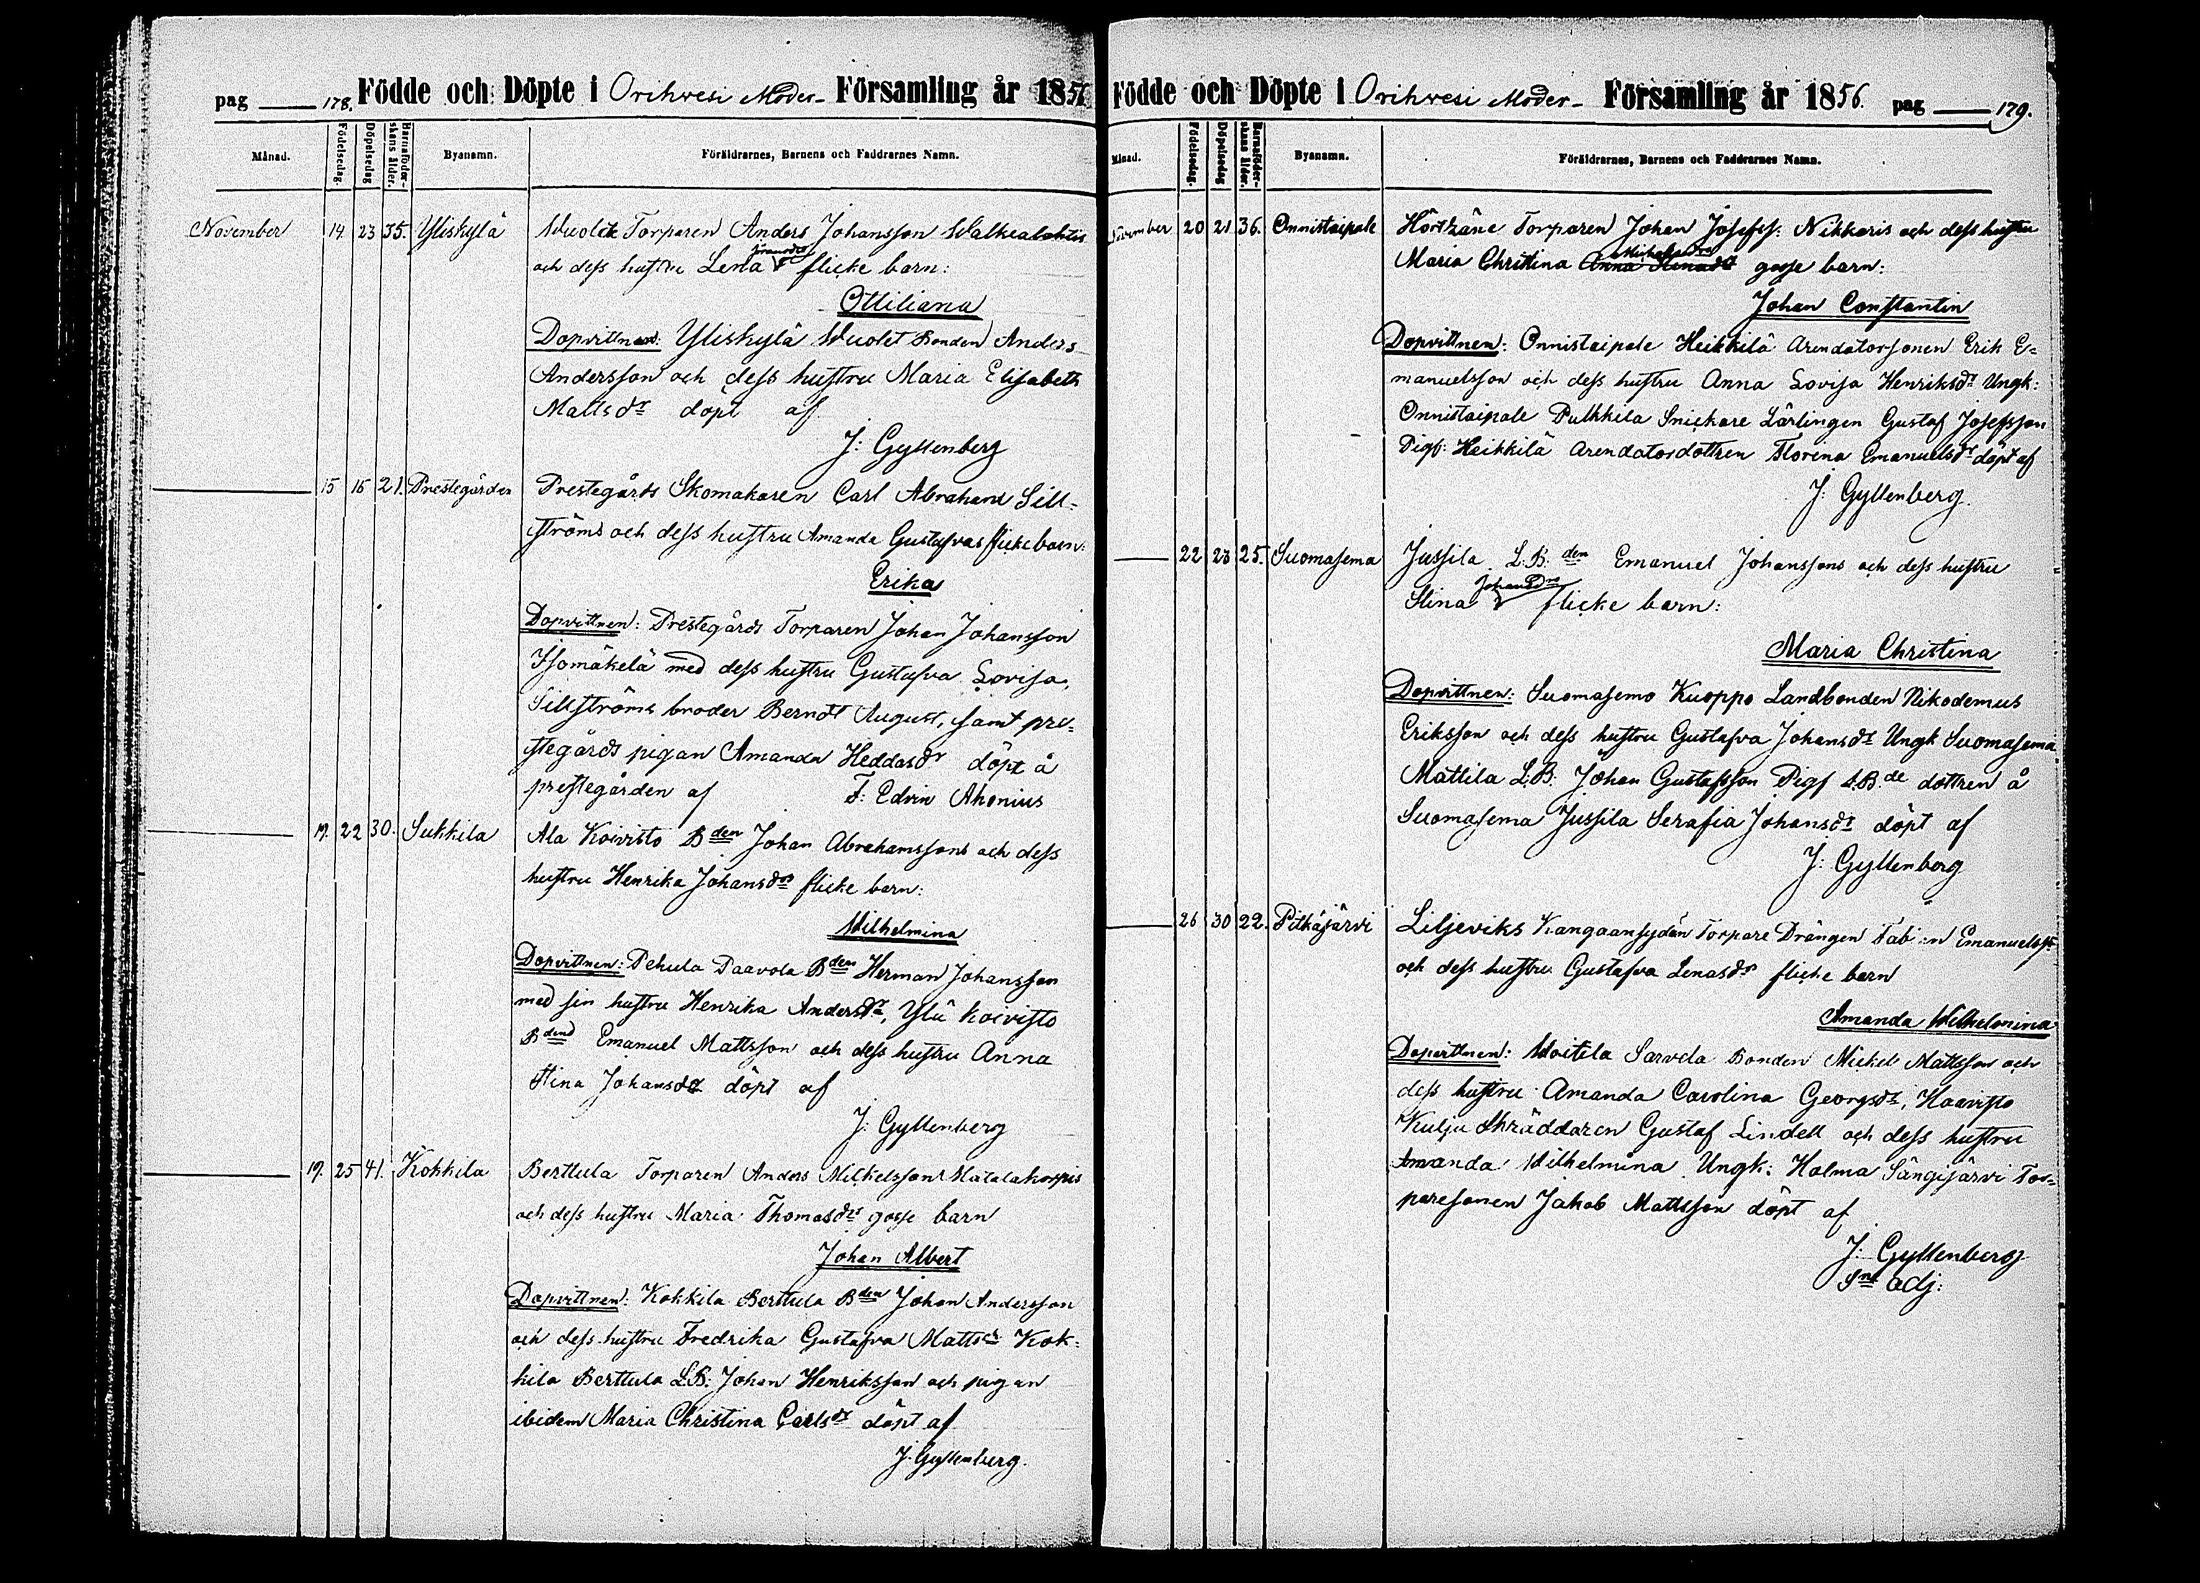 pag 178. Födde och Döpte i Orihvesi Moder- Församling år 1856
Månad. Födelsedag. Döpelsedag Barnaföder-skans ålder. Byanamn. Föräldrarnes, Barnens och Faddrarnes Namn.
November 14 23 35. Yliskylä Wuolet Torparen Anders Johansson Walkealahtis
och dess hustru Lena flicke barn:
Ottiliana
Dopvittnen: Yliskylä Wuolet Bonden Anders
Andersson och dess hustru Maria Elisabeth
Mattsdr döpt af
J: Gyllenberg
15 16 21. Prestegården Prestegårds Skomakaren Carl Abraham Sill-
ströms och dess hustru Amanda Gustafvas flicke barn:
Erika
Dopvittnen: Prestegårds Torparen Johan Johansson
Isomäkelä med dess hustru Gustafva Lovisa,
Sillströms broder Berndt August, samt pre-
stegårds pigan Amanda Heddasdr döpt å
prestegården af F: Edvin Ahonius
19. 22 30. Sukkila Ala Koivisto Bden Johan Abrahamssons och dess
hustru Henrika Johansdrs flicke barn:
Wilhelmina
Dopvittnen: Pehula Paavola Bden Herman Johansson
med sin hustru Henrika Andersdr, Ylä Koivisto
Bden Emanuel Mattsson och dess hustru Anna
Stina Johansdr döpt af
J: Gyllenberg
19. 25 41. Kokkila Berttula Torparen Anders Mikelssons Matalakorpis
och dess hustru Maria Thomasdrs gosse barn
Johan Albert
Dopvittnen: Kokkila Berttula Bden Johan Andersson
och dess hustru Fredrika Gustafva Mattsdr Kok-
kila Berttula L.B: Johan Henriksson och pigan
ibidem Maria Christina Carlsdr döpt af
J. Gyllenberg.
Födde och Döpte i Orihvesi Moder- Församling år 1856. pag 179.
Månad. Födelsedag. Döpelsedag Barnaföder-skans ålder. Byanamn. Föräldrarnes, Barnens och Faddrarnes Namn.
November 20 21 36. Onnistaipale Torparen Johan Josefss. Nikkaris och dess hustru
Maria Christina Michelsdrs gosse barn:
Johan Constantin
Dopvittnen: Onnistaipale Heikkilä Arendatorsonen Erik E-
manuelsson och dess hustru Anna Lovisa Henriksdr Ungk:
Onnistaipale Pulkkila Snickare Lärlingen Gustaf Josefsson
Pigs: Heikkilä Arendatordottren Florena Emanuelsdr döpt af
J: Gyllenberg.
22 23 25. Suomasema Jussila L.B.den Emanuel Johanssons och dess hustru
Stina Johansdrs flicke barn:
Maria Christina
Dopvittnen: Suomasemo Kuoppo Landbonden Nikodemus
Eriksson och dess hustru Gustafva Johansdr Ungk Suomasema
Mattila L.B: Johan Gustafsson Pigs L.B.de dottren å
Suomasema Jussila Serafia Johansdr döpt af
J: Gyllenberg
26 30 22. Pitkäjärvi Liljeviks Kangaansydän Torpare Drängen Fabian Emanuelss.
och dess hustru Gustafva Lenasdrs flicke barn
Amanda Wilhelmina
Dopvittnen: Woitila Sarvela Bonden Mickel Mattsson och
dess hustru Amanda Carolina Georgsdr, Haavisto
Kulju Skräddaren Gustaf Lindell och dess hustru
Amanda Wilhelmina Ungk: Holma Sängijärvi Tor-
paresonen Jakob Mattsson döpt af
J: Gyllenberg
adj: